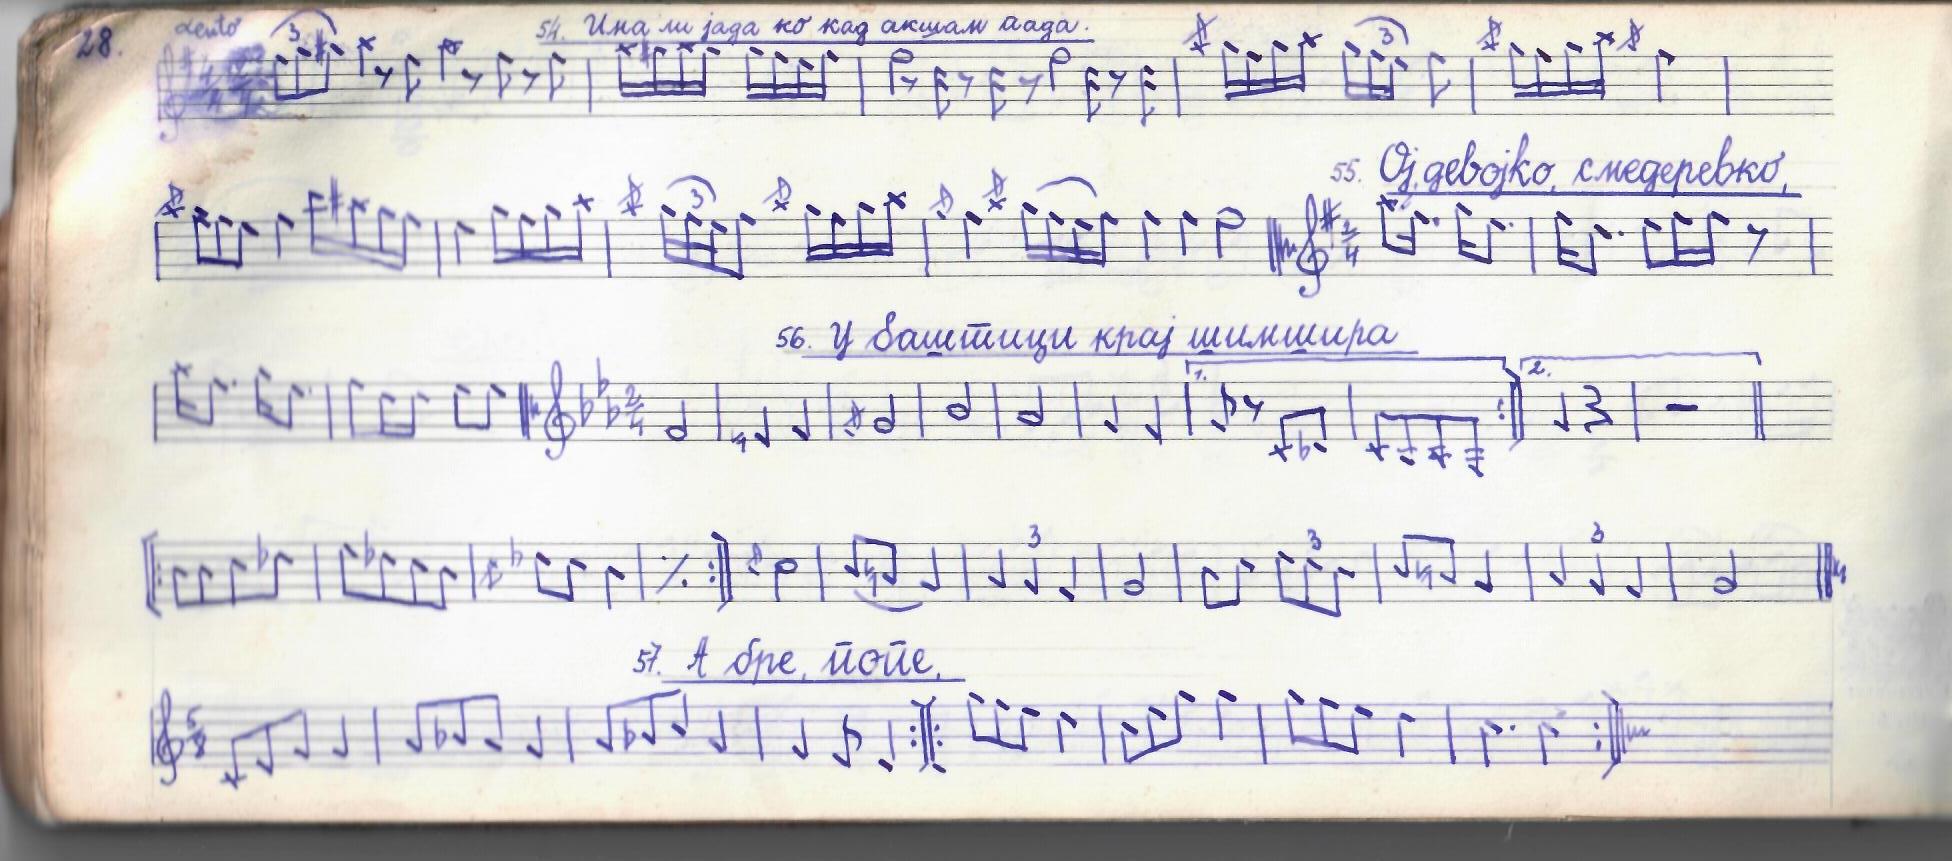 28.
Lento
54. Има ли јада ко кад акшам пада.
3
3
55. Ој, девојко, смедеревко,
3
2/4
56. У баштици крај шимшира
1.
2.
2/4
3
3
3
57. А бре, попе,
5/8